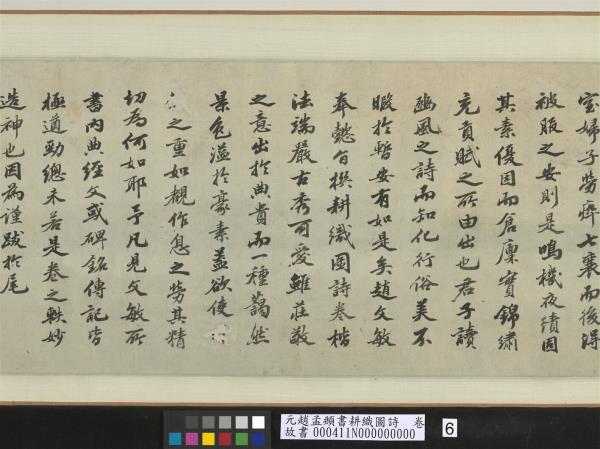 室婦子勞瘁七襄而後得
被服之安則是鳴機夜績固
其素優因而倉廩實錦繡
充貢賦之所由出也君子讀
豳風之詩而知化行俗美不
暇於暫安有如是矣趙文敏
奉懿旨撰耕織圖詩卷楷
法端嚴古秀可愛雖莊敬
之意出於典貴而一種藹然
景色溢於豪素蓋欲使
之重如觀作息之勞其精
切為何如耶予凡見文敏所
書內典經文或碑銘傳記皆
極遒勁總未若是卷之軼妙
造神也因為謹跋於尾
元趙孟頫書耕織圖詩 卷
故書 000411N000000000
6